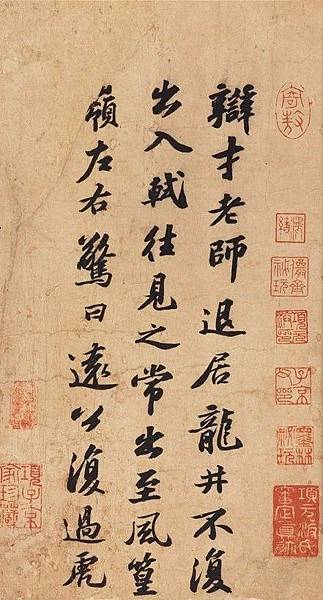 辯才老師退居龍井不復
出入軾往見之常出至風篁
嶺左右驚曰遠公復過虎
項子京
家珍藏